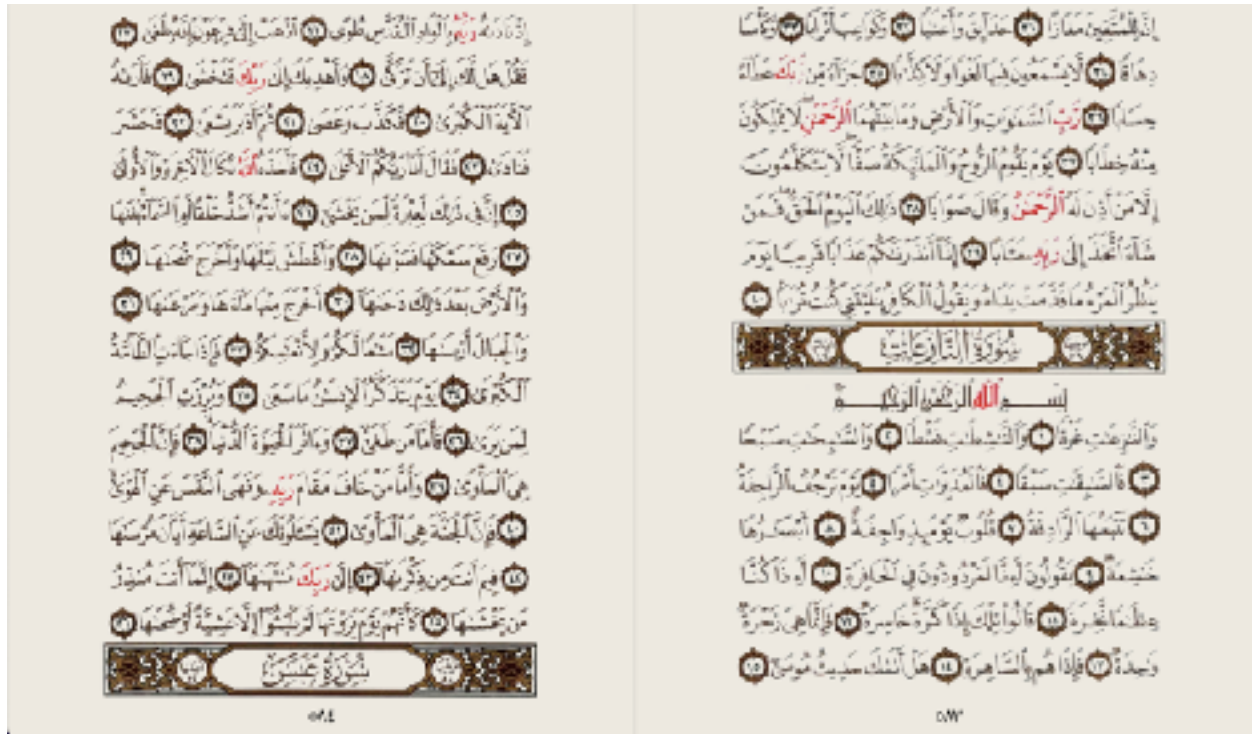 إِنَّ لِلْمُتَّقِينَ مَفَازًا ٣١ حَدَآئِقَ وَأَعْنَٰبًا ٣٢ وَكَوَاعِبَ أَتْرَابًا ٣٣ وَكَأْسًا
دِهَاقًا ٣٤ لَّا يَسْمَعُونَ فِيهَا لَغْوًا وَلَا كِذَّٰبًا ٣٥ جَزَآءً مِّن رَّبِّكَ عَطَآءً
حِسَابًا ٣٦ رَّبِّ ٱلسَّمَٰوَٰتِ وَٱلْأَرْضِ وَمَا بَيْنَهُمَا ٱلرَّحْمَٰنِۖ لَا يَمْلِكُونَ
مِنْهُ خِطَابًا ٣٧ يَوْمَ يَقُومُ ٱلرُّوحُ وَٱلْمَلَٰٓئِكَةُ صَفًّاۖ لَّا يَتَكَلَّمُونَ
إِلَّا مَنْ أَذِنَ لَهُ ٱلرَّحْمَٰنُ وَقَالَ صَوَابًا ٣٨ ذَٰلِكَ ٱلْيَوْمُ ٱلْحَقُّۖ فَمَن
شَآءَ ٱتَّخَذَ إِلَىٰ رَبِّهِۦ مَـَٔابًا ٣٩ إِنَّآ أَنذَرْنَٰكُمْ عَذَابًا قَرِيبًا يَوْمَ
يَنظُرُ ٱلْمَرْءُ مَا قَدَّمَتْ يَدَاهُ وَيَقُولُ ٱلْكَافِرُ يَٰلَيْتَنِى كُنتُ تُرَٰبًۢا ٤٠
سُورَةُ ٱلنَّازِعَاتِ
بِسْمِ ٱللَّهِ ٱلرَّحْمَٰنِ ٱلرَّحِيمِ
وَٱلنَّٰزِعَٰتِ غَرْقًا ١ وَٱلنَّٰشِطَٰتِ نَشْطًا ٢ وَٱلسَّٰبِحَٰتِ سَبْحًا
٣ فَٱلسَّٰبِقَٰتِ سَبْقًا ٤ فَٱلْمُدَبِّرَٰتِ أَمْرًا ٥ يَوْمَ تَرْجُفُ ٱلرَّاجِفَةُ
٦ تَتْبَعُهَا ٱلرَّادِفَةُ ٧ قُلُوبٌ يَوْمَئِذٍ وَاجِفَةٌ ٨ أَبْصَٰرُهَا
خَٰشِعَةٌ ٩ يَقُولُونَ أَءِنَّا لَمَرْدُودُونَ فِى ٱلْحَافِرَةِ ١٠ أَءِذَا كُنَّا
عِظَٰمًا نَّخِرَةً ١١ قَالُوا۟ تِلْكَ إِذًا كَرَّةٌ خَاسِرَةٌ ١٢ فَإِنَّمَا هِىَ زَجْرَةٌ
وَٰحِدَةٌ ١٣ فَإِذَا هُم بِٱلسَّاهِرَةِ ١٤ هَلْ أَتَىٰكَ حَدِيثُ مُوسَىٰٓ ١٥
٥٨٣
إِذْ نَادَىٰهُ رَبُّهُۥ بِٱلْوَادِ ٱلْمُقَدَّسِ طُوًى ١٦ ٱذْهَبْ إِلَىٰ فِرْعَوْنَ إِنَّهُۥ طَغَىٰ ١٧
فَقُلْ هَل لَّكَ إِلَىٰٓ أَن تَزَكَّىٰ ١٨ وَأَهْدِيَكَ إِلَىٰ رَبِّكَ فَتَخْشَىٰ ١٩ فَأَرَىٰهُ
ٱلْـَٔايَةَ ٱلْكُبْرَىٰ ٢٠ فَكَذَّبَ وَعَصَىٰ ٢١ ثُمَّ أَدْبَرَ يَسْعَىٰ ٢٢ فَحَشَرَ
فَنَادَىٰ ٢٣ فَقَالَ أَنَا۠ رَبُّكُمُ ٱلْأَعْلَىٰ ٢٤ فَأَخَذَهُ ٱللَّهُ نَكَالَ ٱلْـَٔاخِرَةِ وَٱلْأُولَىٰٓ
٢٥ إِنَّ فِى ذَٰلِكَ لَعِبْرَةً لِّمَن يَخْشَىٰٓ ٢٦ ءَأَنتُمْ أَشَدُّ خَلْقًا أَمِ ٱلسَّمَآءُۚ بَنَىٰهَا
٢٧ رَفَعَ سَمْكَهَا فَسَوَّىٰهَا ٢٨ وَأَغْطَشَ لَيْلَهَا وَأَخْرَجَ ضُحَىٰهَا ٢٩
وَٱلْأَرْضَ بَعْدَ ذَٰلِكَ دَحَىٰهَآ ٣٠ أَخْرَجَ مِنْهَا مَآءَهَا وَمَرْعَىٰهَا ٣١
وَٱلْجِبَالَ أَرْسَىٰهَا ٣٢ مَتَٰعًا لَّكُمْ وَلِأَنْعَٰمِكُمْ ٣٣ فَإِذَا جَآءَتِ ٱلطَّآمَّةُ
ٱلْكُبْرَىٰ ٣٤ يَوْمَ يَتَذَكَّرُ ٱلْإِنسَٰنُ مَا سَعَىٰ ٣٥ وَبُرِّزَتِ ٱلْجَحِيمُ
لِمَن يَرَىٰ ٣٦ فَأَمَّا مَن طَغَىٰ ٣٧ وَءَاثَرَ ٱلْحَيَوٰةَ ٱلدُّنْيَا ٣٨ فَإِنَّ ٱلْجَحِيمَ
هِىَ ٱلْمَأْوَىٰ ٣٩ وَأَمَّا مَنْ خَافَ مَقَامَ رَبِّهِۦ وَنَهَى ٱلنَّفْسَ عَنِ ٱلْهَوَىٰ
٤٠ فَإِنَّ ٱلْجَنَّةَ هِىَ ٱلْمَأْوَىٰ ٤١ يَسْـَٔلُونَكَ عَنِ ٱلسَّاعَةِ أَيَّانَ مُرْسَىٰهَا
٤٢ فِيمَ أَنتَ مِن ذِكْرَىٰهَآ ٤٣ إِلَىٰ رَبِّكَ مُنتَهَىٰهَآ ٤٤ إِنَّمَآ أَنتَ مُنذِرُ
مَن يَخْشَىٰهَا ٤٥ كَأَنَّهُمْ يَوْمَ يَرَوْنَهَا لَمْ يَلْبَثُوٓا۟ إِلَّا عَشِيَّةً أَوْ ضُحَىٰهَا ٤٦
سُورَةُ عَبَسَ
٥٨٤